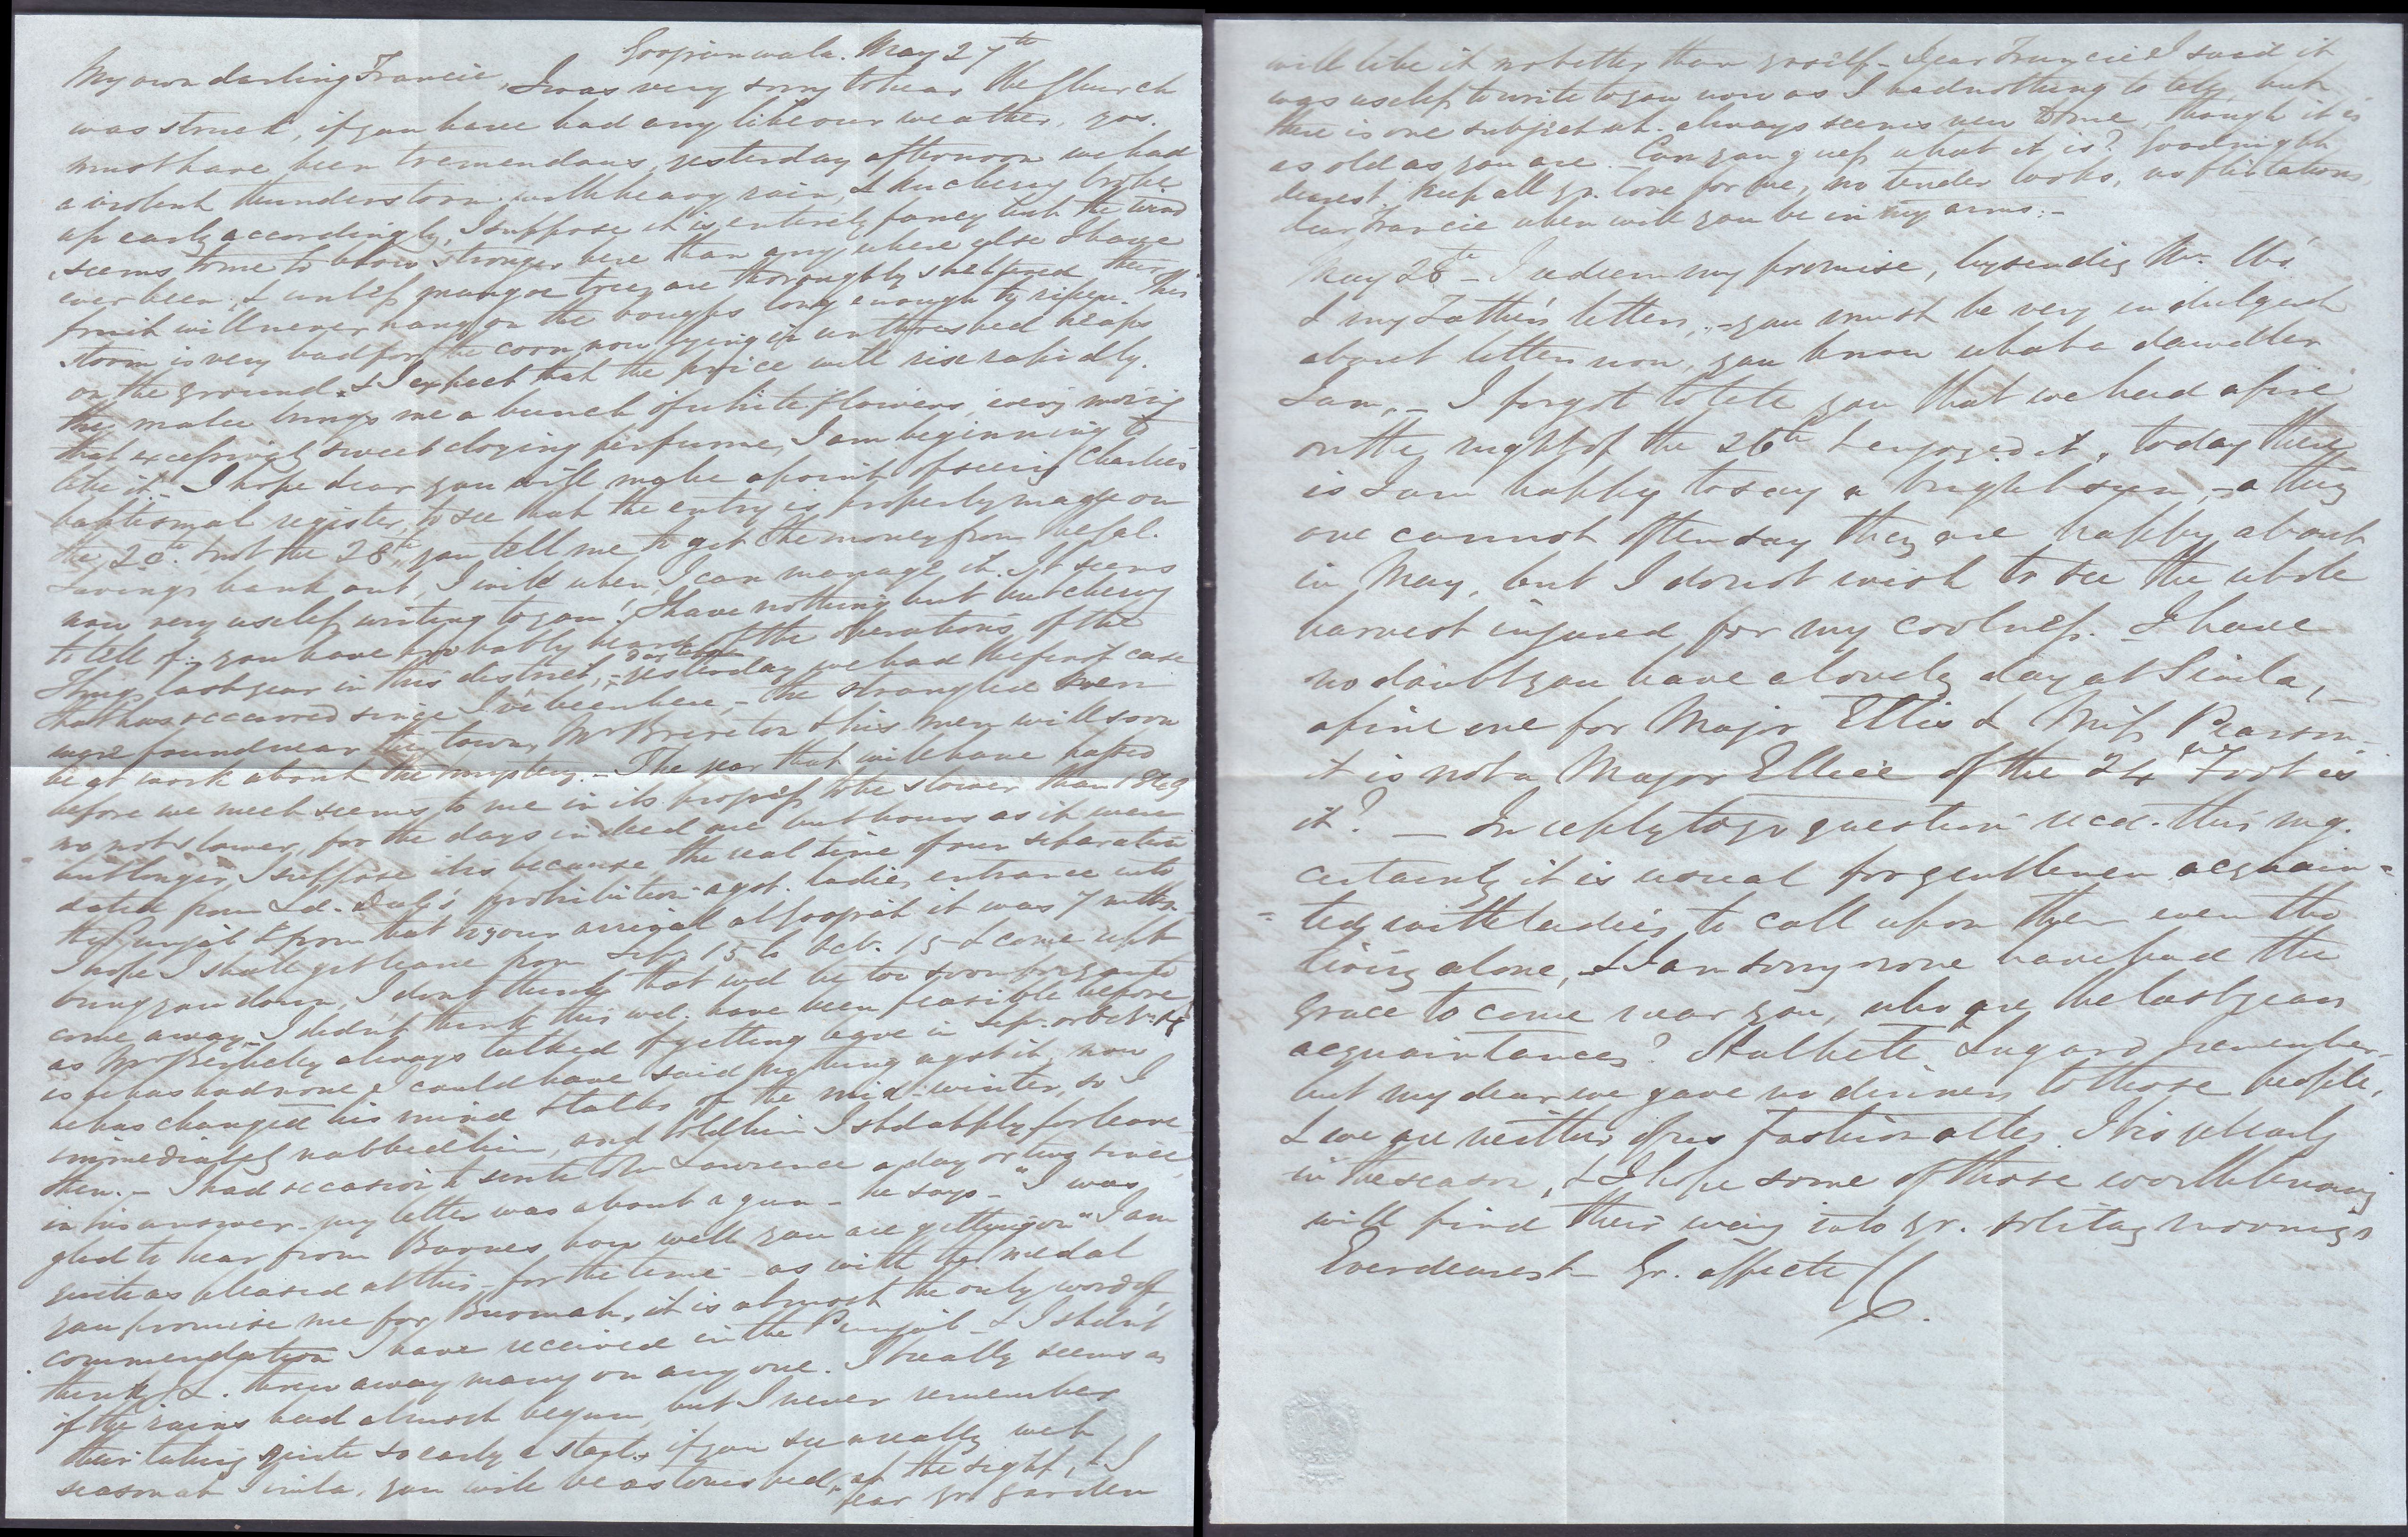 Goojranwala. May 27th
My own darling Francie, I was very sorry to hear the Church
was struck, if you have had any like our weather, yos.
must have been tremendous, yesterday afternoon we had
a violent thunderstorm with heavy rain, & Kucherry broke
up early accordingly, I suppose it is entirely fancy but the wind
seems to me to blow stronger here than any where else I have
ever been, & unless mangoe trees are thoroughly sheltered their
fruit will never hang on the boughs long enough to ripen. This
storm is very bad for the corn now lying in unthreshed heaps
on the ground & I expect that the price will rise rapidly.
the malee brings me a bunch of white flowers, every morng
that excessively sweet cloying perfume, I am beginning to
like it. I hope dear you will make a point of seeing Charlie's
baptismal register, to see that the entry is properly made on
the 20th. & not the 28th, you tell me to get the money from the
Savings bank out, I will when I can manage it. It seems
now very useless writing to you! I have nothing but butchery
to tell of; you have probably heard of the operations of the
Thugs last year in this district, yesterday we had the first case
that has occurred since I've been here, - the strangled men
were found near the town, Mr Brereton & his men will soon
be at work about the mystery. - The year that will have passed
before we meet seems to me in its progress to be slower than 1849
no not slower, for the days indeed are but hours as it were
but longer, I suppose it is because the real time of our separation
dated from Ld. Dal's prohibition agst. ladies entrance into
the Punjab & from that to your arrival at Goojrat it was 7 mths
I hope I shall get leave from Sep. 15 to Oct. 15 & come up &
bring you down, I dont think that wd be too soon for you to
come away. I didn't think this wd. have been feasible before
as Mr Berkeley always talked of getting leave in Sep. or Octr. &
as he has had none I could have said nothing agst it, now
he has changed his mind & talks of the mid-winter, so I
immediately nabbed him, and told him I shd apply for leave
then. - I had occasion to write to Lawrence a day or two since
in his answer - my letter was about a gun - he says - "I was
glad to hear from Barnes, how well you are getting on" I am
quite as pleased at this - for the time - as with the medal
you promise me for Burmah, it is almost the only word of
commendation I have received in the Punjab - & I shdn't
think J L. threw away many on any one. It really seems as
if the rains had almost begun, but I never remember
their taking quite so early a start, if you see a really wet
season at Simla, you will be astonished, at the sight, & I
fear yr garden
will like it no better than yrself - Dear Francie I said it
was useless to write to you now as I had nothing to tell, but
there is one subject wh. always seems new to me, though it is
as old as you are. Can you guess what it is? Goodnight
dearest. Keep all yr. love for me, no tender looks, no flirtations
dear Francie when will you be in my arms. -
May 28th - I redeem my promise, by sending Mr.
& my Father's letters, - you must be very indulgent
about letters now, you know what a dawdler
I am. - I forgot to tell you that we had a fire
on the night of the 26th & enjoyed it, today there
is I am happy to say a bright sun, - a thing
one cannot often say they are happy about
in May, but I do not wish to see the whole
harvest injured for my coolness. I have
no doubt you have a lovely day at Simla, -
a fine one for Major Ellis & Miss Pearson -
it is not a Major Ellice of the 24th Foot is
it? - In reply to yr question recd. this mg.
certainly it is usual for gentlemen acquain=
=ted with ladies to call upon them even tho
living alone, & I am sorry none have had the
grace to come near you, who are the last years
acquaintances? Lugard I remember -
but my dear we gave no dinners to those people,
& we are neither of us fashionables. It is yet early
in the season, & I hope some of those worth knowing
will find their way into yr. solitary mornings
Ever dearest Yr. affecte